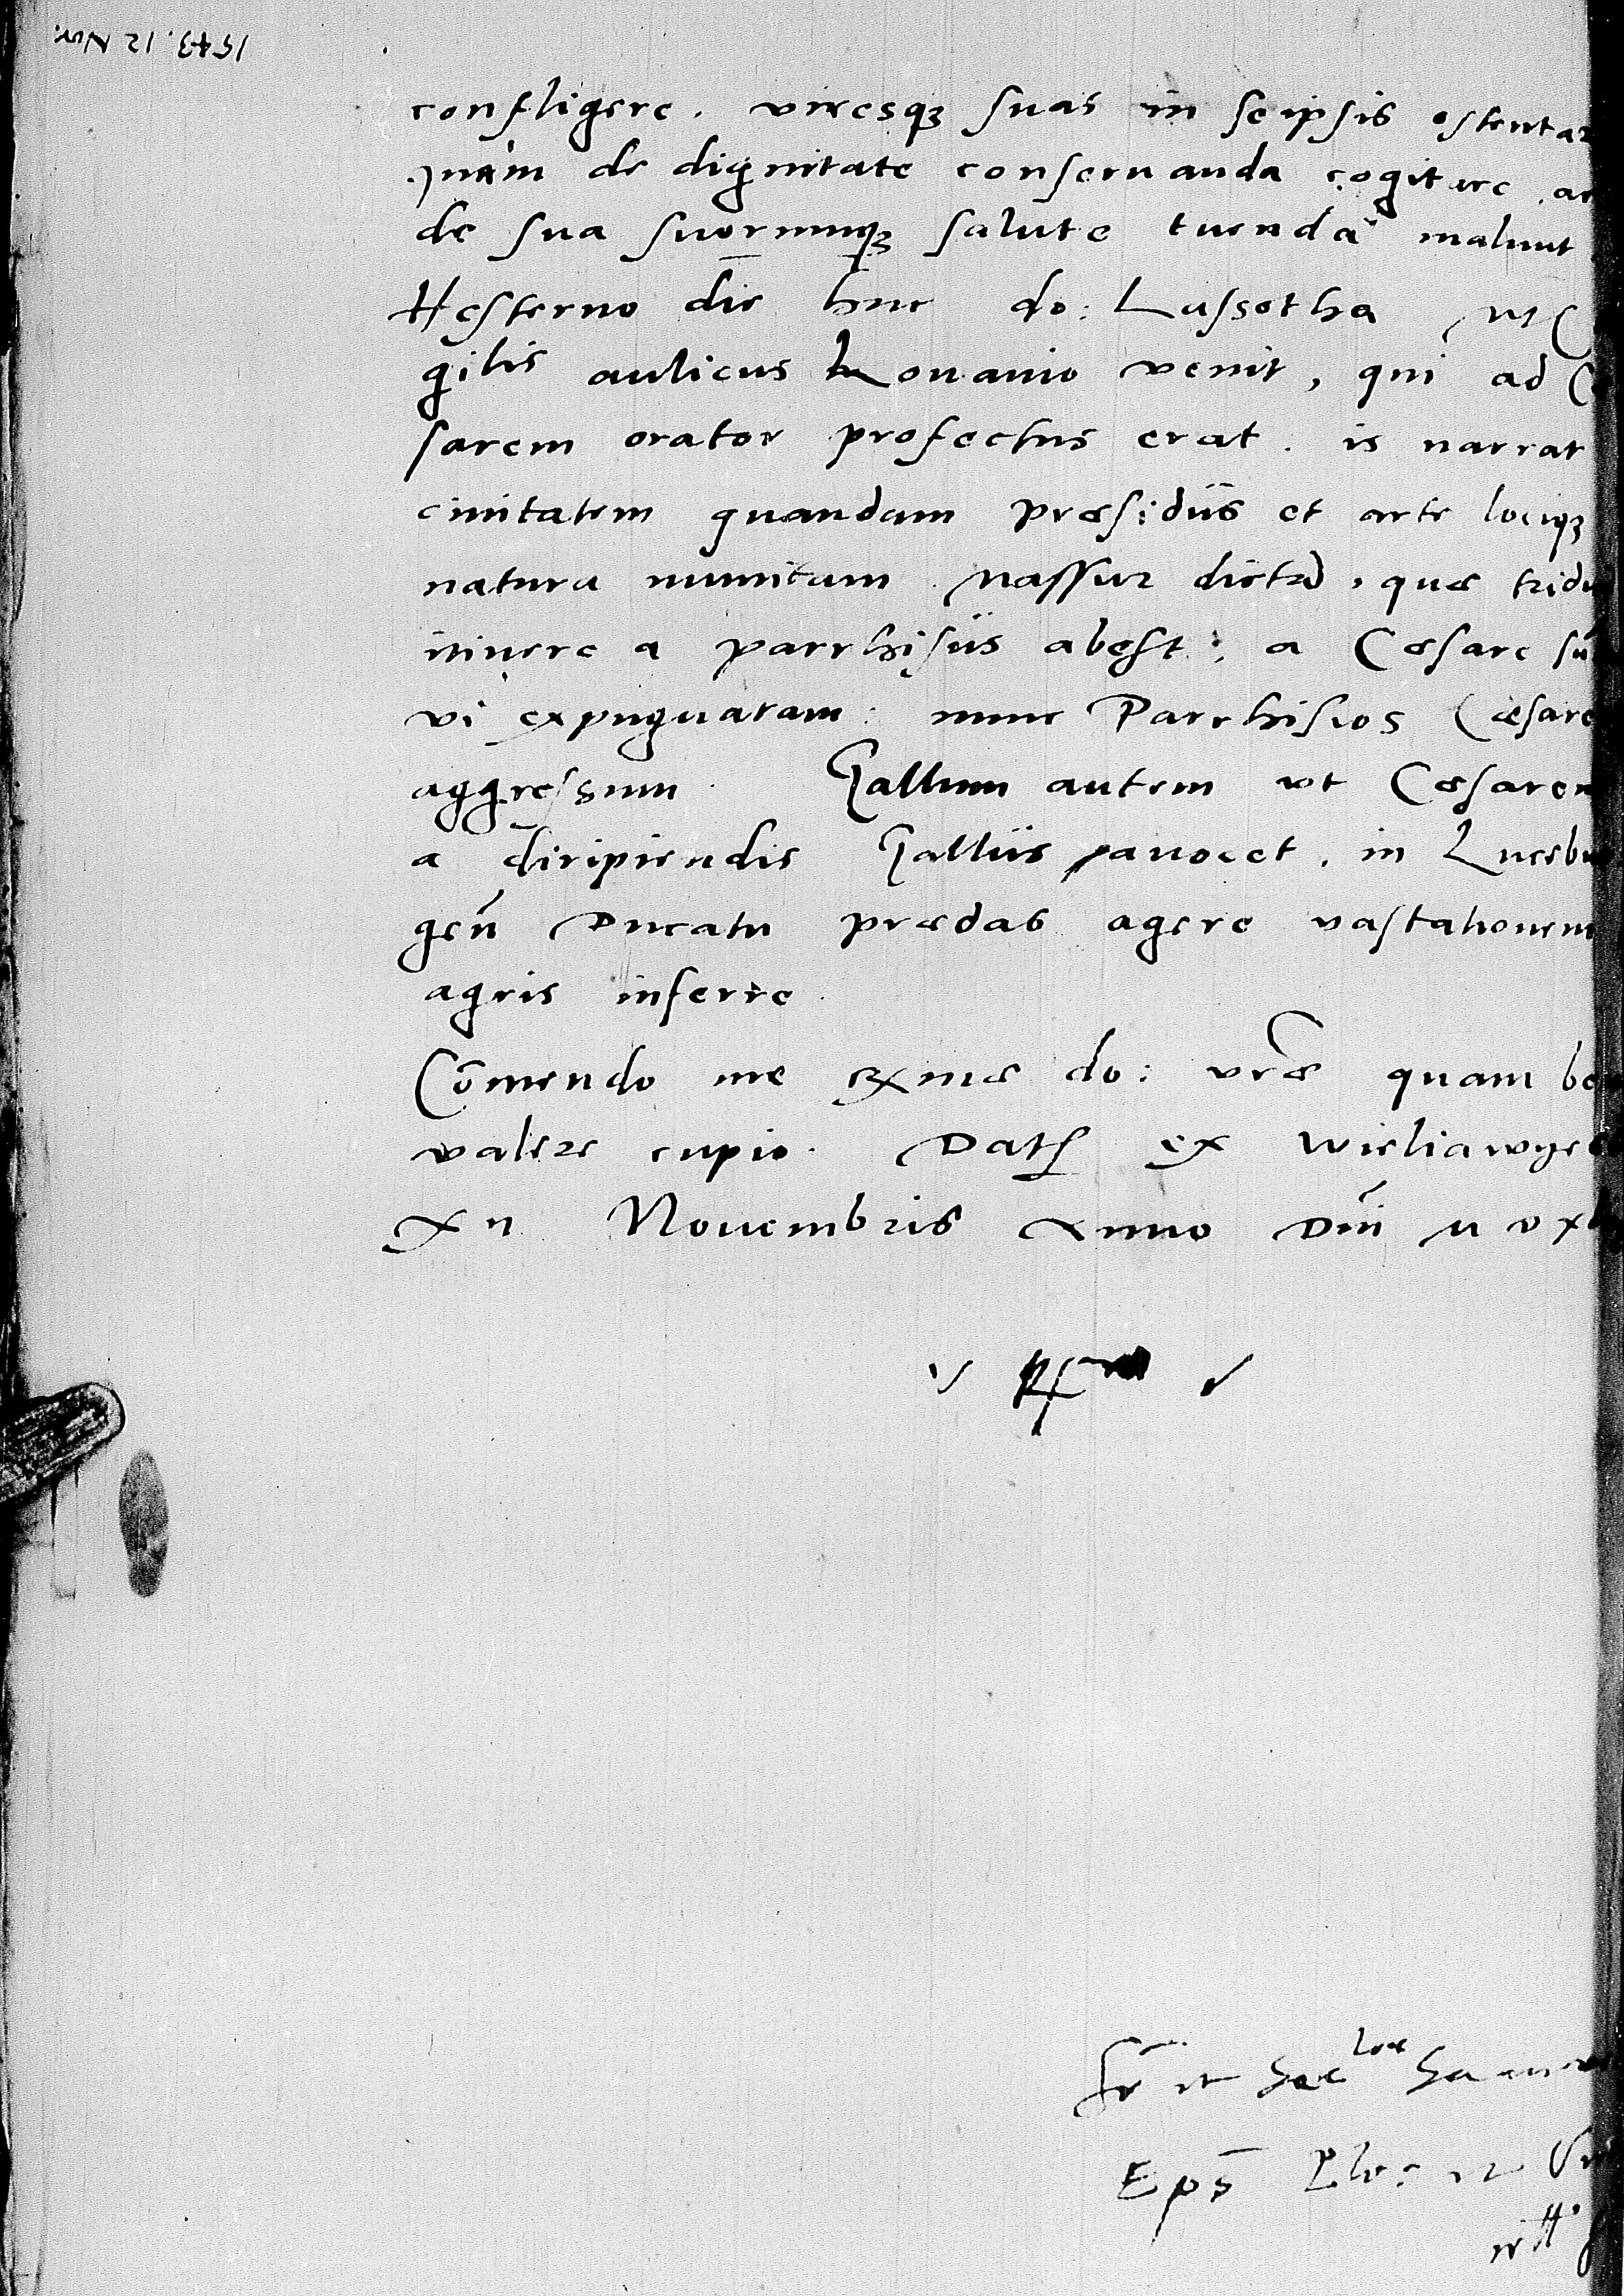 1543. 12 Nov.
confligere. viresqȝ suas in seipsis ostentar
quam de dignitate conseruanda cogitare ac
de sua suorumqȝ salute tuenda malunt
Hesterno die huc do: Lassotha
aulicus Louanio venit, qui ad C
sarem orator profectus erat. is narrat
ciuitatem quandam præsidiis et arte lociqȝ
natura munitam Nassur dictā, quæ tridu
itinere a parrhisiis abest: a Cæsare
vi expugnatam: nunc Parrhisios Cæsare
aggressum. Gallum autem vt Cæsarem
a diripiendis Galliis auocet. in Lucebu
geñ Ducatu prædas agere vastationem
agris inferre.
Cōmendo me do: vræ quam be
valere cupio. Dat ex Wieliawye
XII Nouembris Anno Dñi M D XL
Eps̄ Plo: